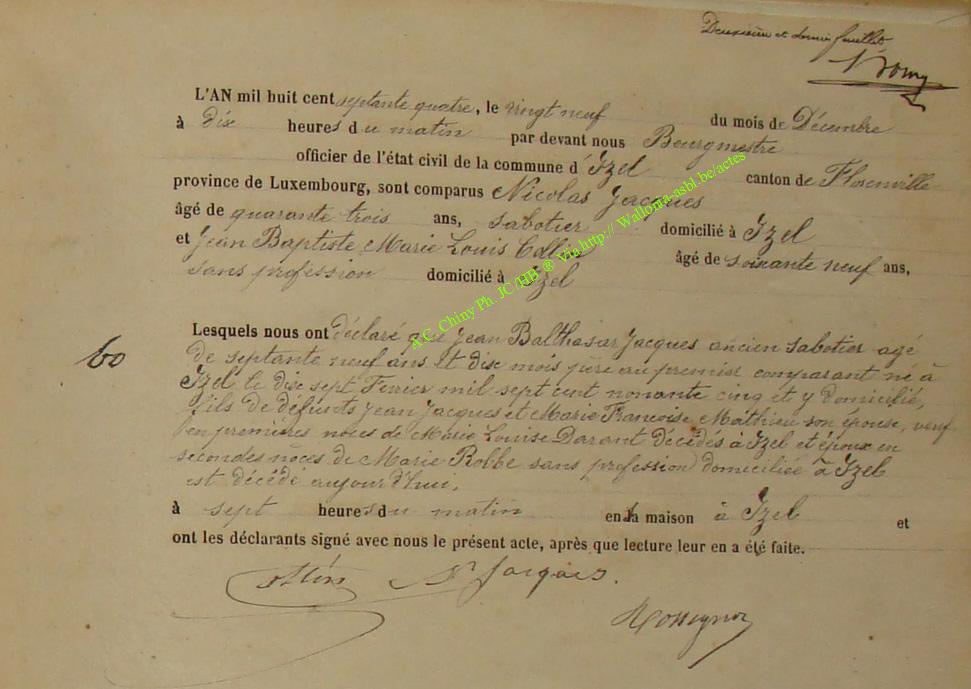 Deuxième et dernier feuillet
L'AN mil huit cent septante quatre, le vingt neuf du mois de Décembre
à dix heures du matin par devant nous Bourgmestre
officier de l'état civil de la commune d'Izel canton de Florenville
province de Luxembourg, sont comparus Nicolas Jacques
âgé de quarante trois ans, sabotier domicilié à Izel
et Jean Baptiste Marie Louis âgé de soixante neuf ans,
sans profession domicilié à Izel
A.C. Chiny Ph. JC /HB ® Via http:// Wallonia-asbl.be/actes
60
Lesquels nous ont déclaré que Jean Balthasar Jacques ancien sabotier agé
de septante neuf ans et dix mois père au premier comparant né à
Izel le dix sept Fevrier mil sept cent nonante cinq et y domicilié,
fils de défunts Jean Jacques et Marie Francoise Mathieu son épouse, veuf
en premières noces de Marie Louise Darant decédés à Izel et époux en
secondes noces de Marie Robbe sans profession domiciliée à Izel
est décédé aujourd'hui,
à sept heures du matin en sa maison à Izel et
ont les déclarants signé avec nous le présent acte, après que lecture leur en a été faite.
N Jacques.
Rossignon